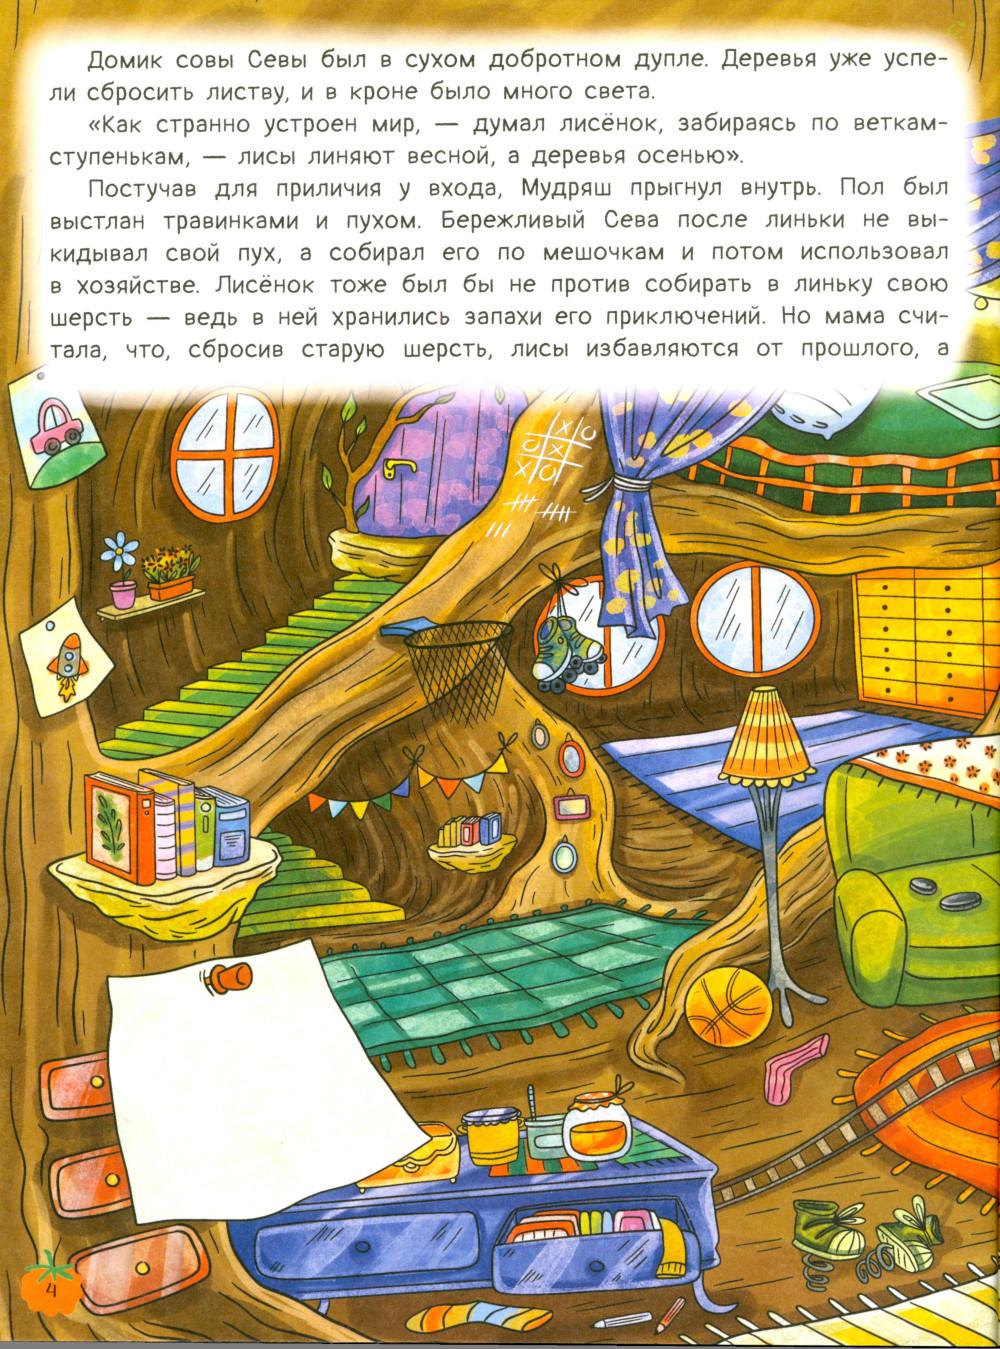 Домик совы Севы был в сухом добротном дупле. Деревья уже успе-
ли сбросить листву, и в кроне было много света.
«Как странно устроен мир, — думал лисёнок, забираясь по веткам-
ступенькам, — лисы линяют весной, а деревья осенью».
Постучав для приличия у входа, Мудряш прыгнул внутрь. Пол был
выстлан травинками и пухом. Бережливый Сева после линьки не вы-
кидывал свой пух, а собирал его по мешочкам и потом использовал
в хозяйстве. Лисёнок тоже был бы не против собирать в линьку свою
шерсть — ведь в ней хранились запахи его приключений. Но мама счи-
тала, что, сбросив старую шерсть, лисы избавляются от прошлого, а
XO
OX
XO
4